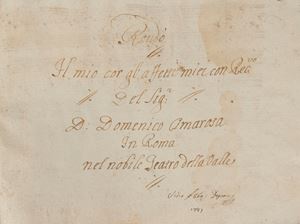 Rondò
Il mio cor gl'affetti miei con Rec.vo
Del Sig.r
D. Domenico Cimarosa
In Roma
nel nobile Teatro della Valle